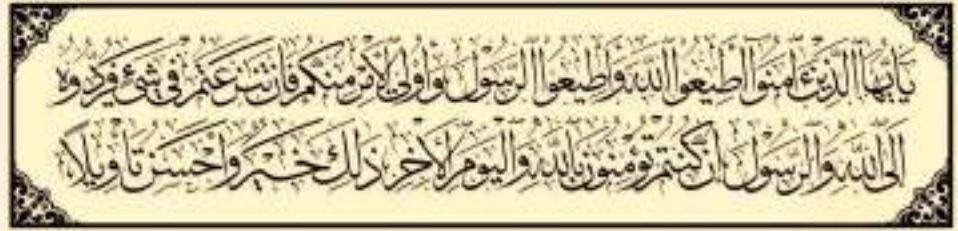 يَا أَيُّهَا الَّذِينَ ءَامَنُوا أَطِيعُوا اللَّهَ وَأَطِيعُوا الرَّسُولَ وَأُولِي الْأَمْرِ مِنكُمْ فَإِن تَنَازَعْتُمْ فِي شَيْءٍ فَرُدُّوهُ
إِلَى اللَّهِ وَالرَّسُولِ إِن كُنتُمْ تُؤْمِنُونَ بِاللَّهِ وَالْيَوْمِ الْآخِرِ ذَٰلِكَ خَيْرٌ وَأَحْسَنُ تَأْوِيلًا